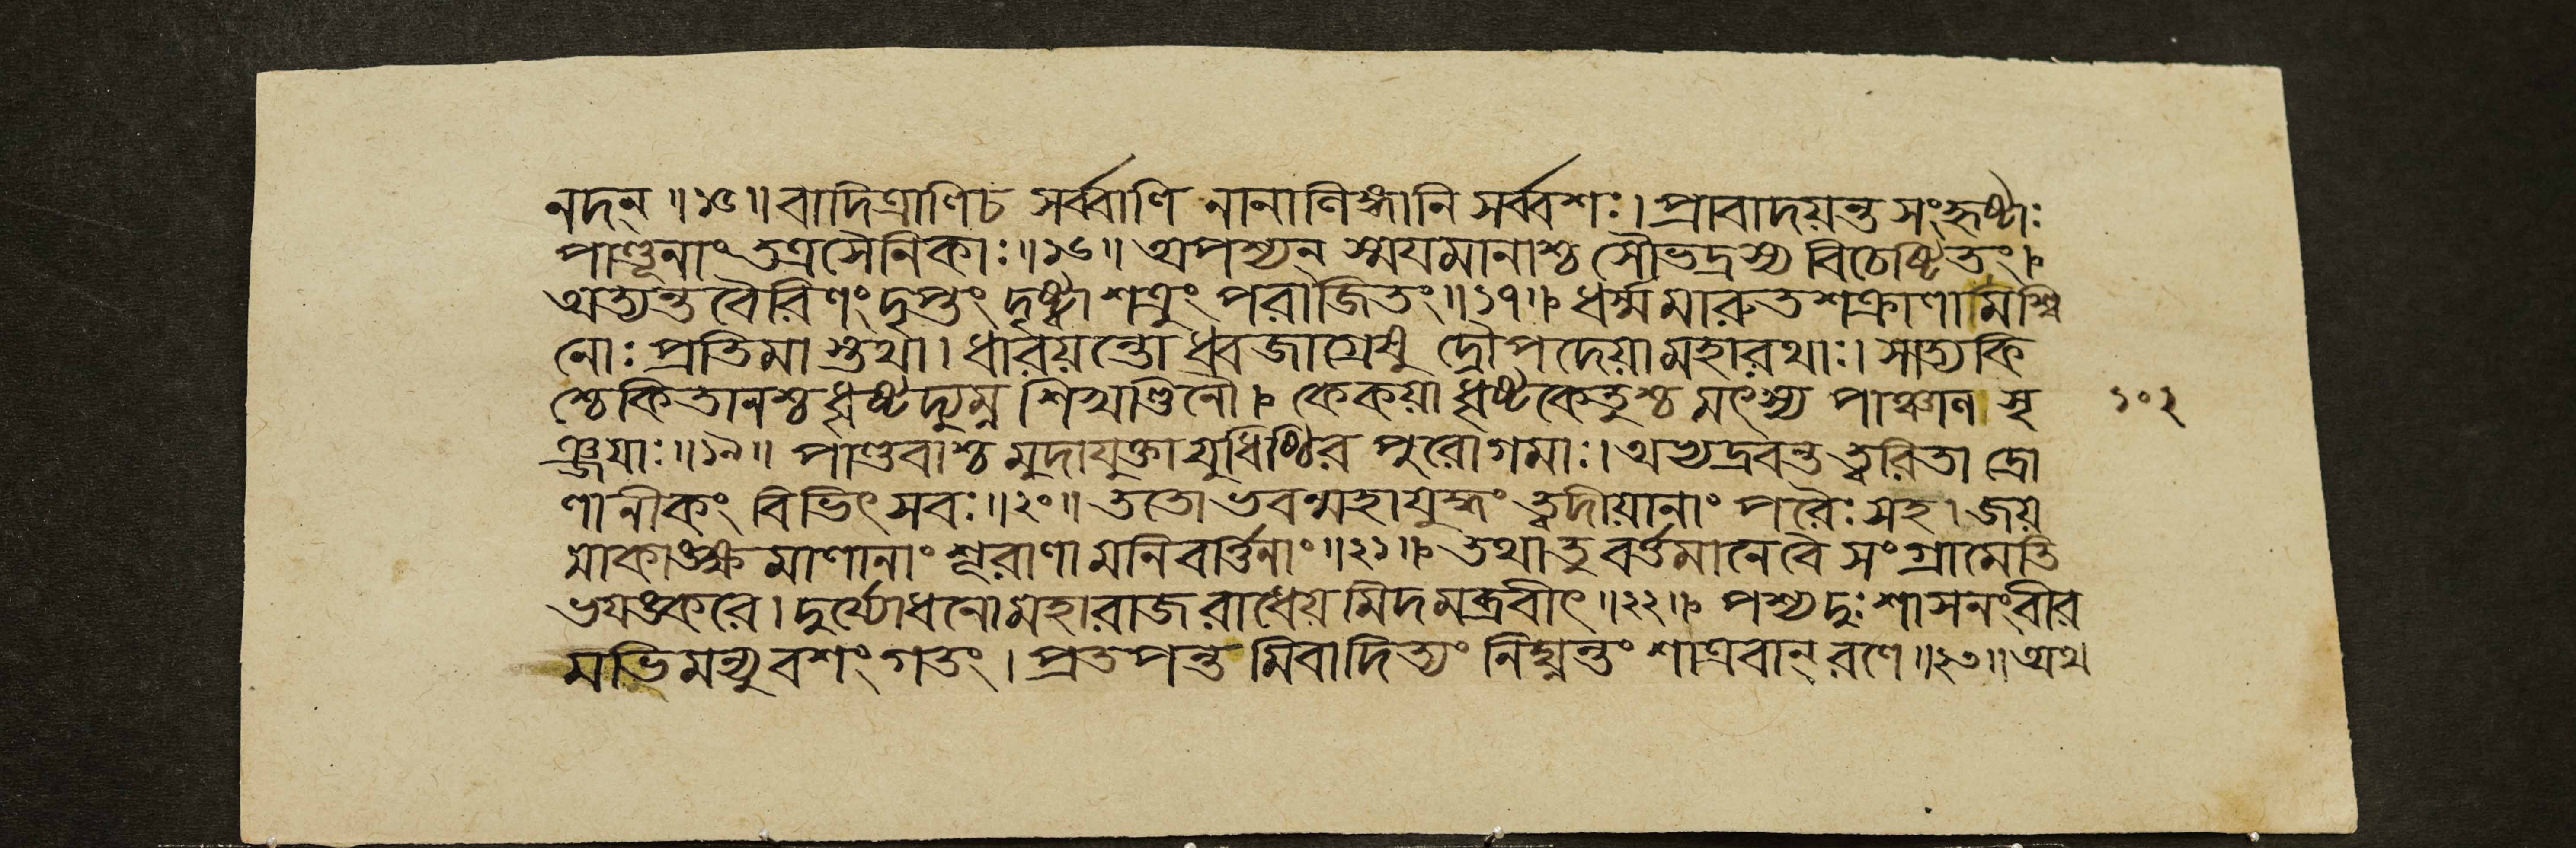 নদন্ ॥১৫॥ বাদিত্রাণিচ সর্ব্বাণি নানালিঙ্গানি সর্ব্বশঃ। প্রাবাদয়ন্ত সংহৃষ্টাঃ
পাণ্ডূনাং তত্রসৈনিকাঃ॥১৬॥ অপশ্যন্ স্ময়মানাশ্চ সৌভদ্রস্য বিচেষ্টিতং।
অত্যন্তবৈরিণং দৃপ্তং দৃষ্ট্বা শত্রুং পরাজিতং॥১৭॥ ধর্ম্মমারুতশক্রাণামশ্বি
নোঃ প্রতিমাস্তথা। ধারয়ন্তো ধ্বজাগ্রেষু দ্রৌপদেয়া মহারথাঃ। সাত্যকি
শ্চেকিতানশ্চ ধৃষ্টদ্যুম্ন শিখণ্ডিনৌ। কেকয়া ধৃষ্টকেতুশ্চ মৎস্য পাঞ্চাল সৃ
ঞ্জয়াঃ॥১৯॥ পাণ্ডবাশ্চ মুদাযুক্তা যুধিষ্ঠির পুরোগমাঃ। অভ্যদ্রবন্ত ত্বরিতা দ্রো
ণানীকং বিভিৎসবঃ॥২০॥ ততোভবন্মহাযুদ্ধং ত্বদীয়ানাং পরৈঃ সহ। জয়
মাকাঙ্ক্ষমাণানাং শূরাণামনিবর্ত্তিনাং॥২১॥ তথাতু বর্ত্তমানেবৈ সংগ্রামেতি
ভয়ঙ্করে। দুর্য্যোধনো মহারাজ রাধেয়মিদমব্রবীৎ॥২২॥ পশ্য দুঃশাসনং বীর
মভিমন্যুবশং গতং। প্রতপন্তমিবাদিত্যং নিঘ্নন্তং শাত্রবান্ রণে॥২৩॥ অথ
১০২